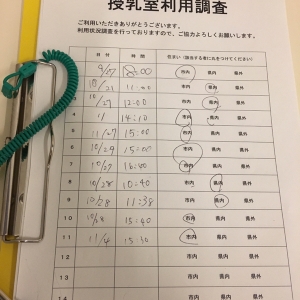 授乳室利用調査
ご利用いただきありがとうございます。
利用状況調査を行っておりますので、ご協力よろしくお願いします。
日付 時間 住まい(該当する者に丸をつけてください)
9/27 18:00 市内 県内 県外
10/21 11:00 市内 県内 県外
10/27 12:00 市内 県内 県外
4 14:10 市内 県内 県外
5 11/27 15:00 市内 県内 県外
6 10/29 15:00 市内 県内 県外
7 10/27 16:00 市内 県内 県外
8 10/28 10:40 市内 県内 県外
9 10/28 11:38 市内 県内 県外
10 10/28 15:40 市内 県内 県外
11 11/4 15:30 市内 県内 県外
12 市内 県内 県外
13 市内 県内 県外
14 市内 県内 県外